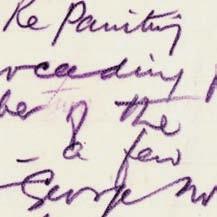 Re Painting
ceeding
ber of the
a few
George